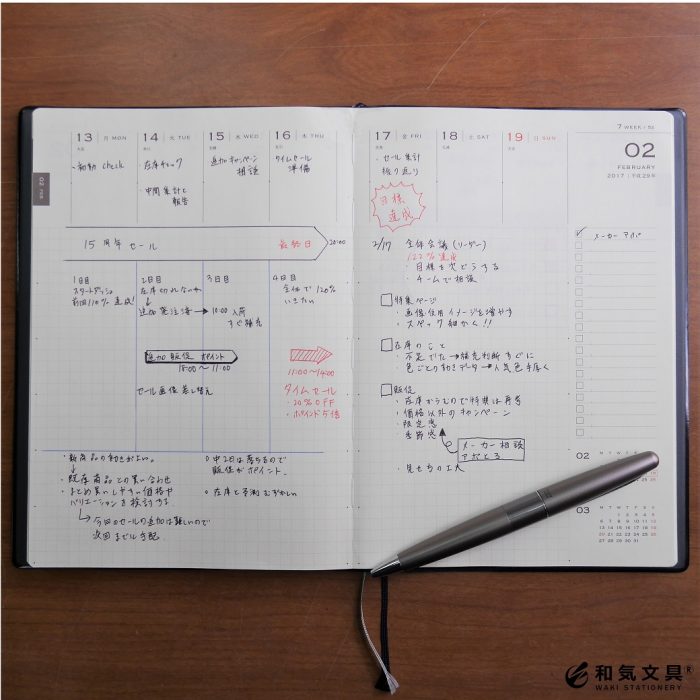 13 月 MON
・初動 check
14 火 TUE
・在庫チェック
・中間集計と
報告
15 水 WED
追加キャンペーン
相談
16 木 THU
タイムセール
準備
17 金 FRI
・セール集計
振り返り
目標
達成
18 土 SAT
19 日 SUN
7 WEEK / 52
02
FEBRUARY
2017 / 平成29年
02 FEB
15周年 セール 最終日 20:00
1日目
スタートダッシュ
前回110% 達成!
2日目
在庫切れないか
↓
追加発注済 → 10:00 入荷
すぐ補充
3日目
4日目
全体で120%
いきたい
追加販促 ポイント
18:00 ~ 11:00
11:00~14:00
タイムセール
・20% OFF
・ポイント5倍
セール画像差し替え
・新商品の動きがよい。
↓
・既存商品との買い合わせ
・まとめ買いしやすい価格や
バリエーションを検討する
今回のセールの追加は難しいので
次回までに手配
○ 中2日は落ちるので
販促がポイント。
○ 在庫と予測むずかしい
2/17 全体会議 (リーダー)
122% 達成
・目標を次どうする
・チームで相談
□特集ページ
・画像使用イメージを増やす
・スペック細かく!!
□在庫のこと
・不足でた→補充判断すぐに
・色ごとの動きデータ→人気色手厚く
□販促
・在庫からむので特集は再考
・価格以外のキャンペーン
・限定感
・季節感
メーカー相談
アポとる
・見せ方の工夫
✓ メーカー アポ
02
M T W T F S S
03
M T W T F S S
1 2 3 4 5
6 7 8 9 10 11 12
13 14 15 16 17 18 19
20 21 22 23 24 25 26
27 28 29 30 31
和気文具®
WAKI STATIONERY